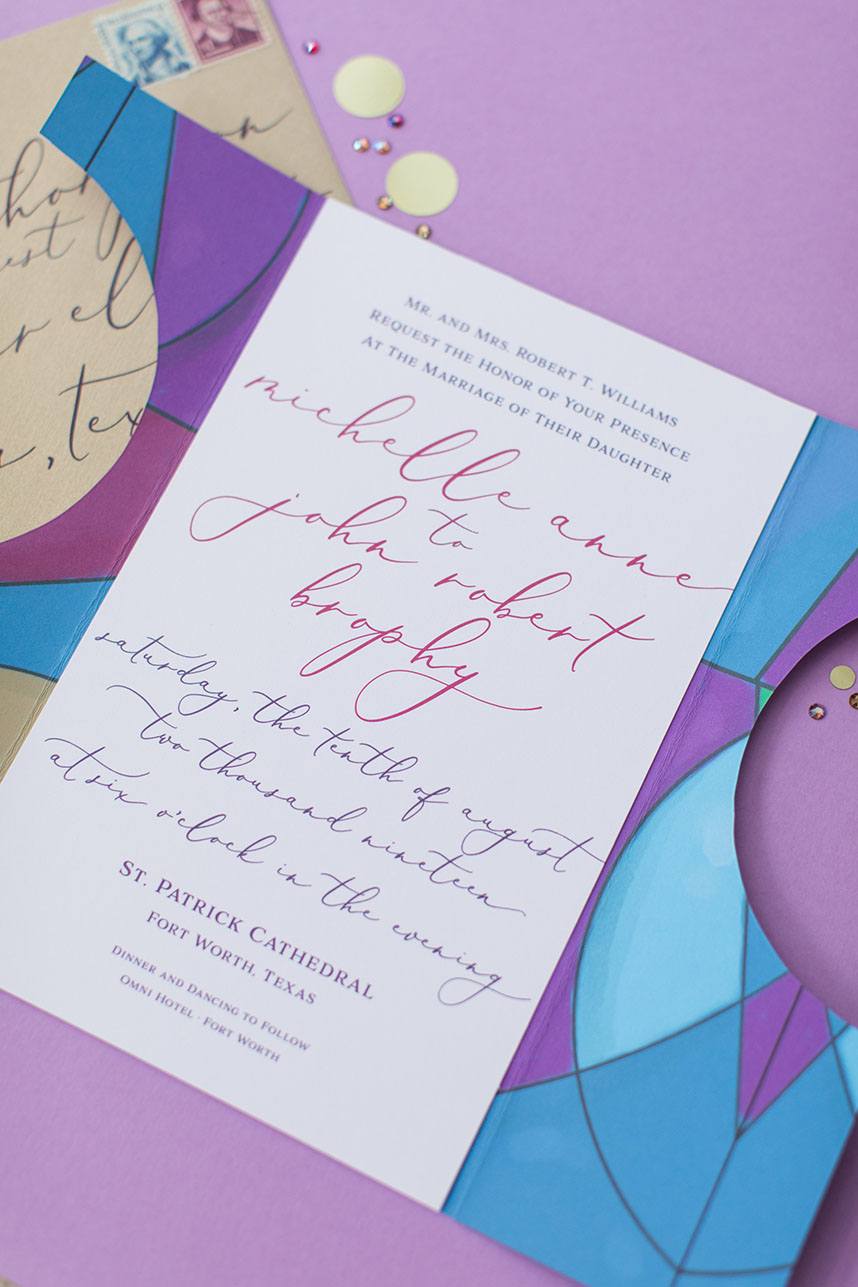 Mr. and Mrs. Robert T. Williams
Request the Honor of Your Presence
at The Marriage of Their Daughter
michelle anne
to
john robert
brophy
saturday, the tenth of august
two thousand nineteen
at six o'clock in the evening
St. Patrick Cathedral
Fort Worth, Texas
Dinner and Dancing to Follow
Omni Hotel · Fort Worth